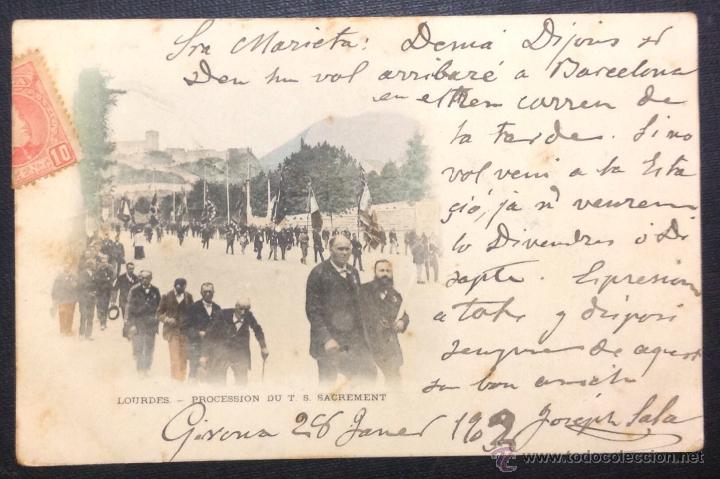 Sra Marieta: Demá Dijous si
Deu hu vol arribaré a Barcelona
en el tren correu de
la tarde. Si no
vol veni a la Esta
ció, ja ns veurem
lo Divendres ó Di
sapte. Espresions
a tots y disposi
sempre de aquest
su bon amich
Joseph Sala
Girona 28 Janer 1902
10
LOURDES. - PROCESSION DU T. S. SACREMENT
www.todocoleccion.net